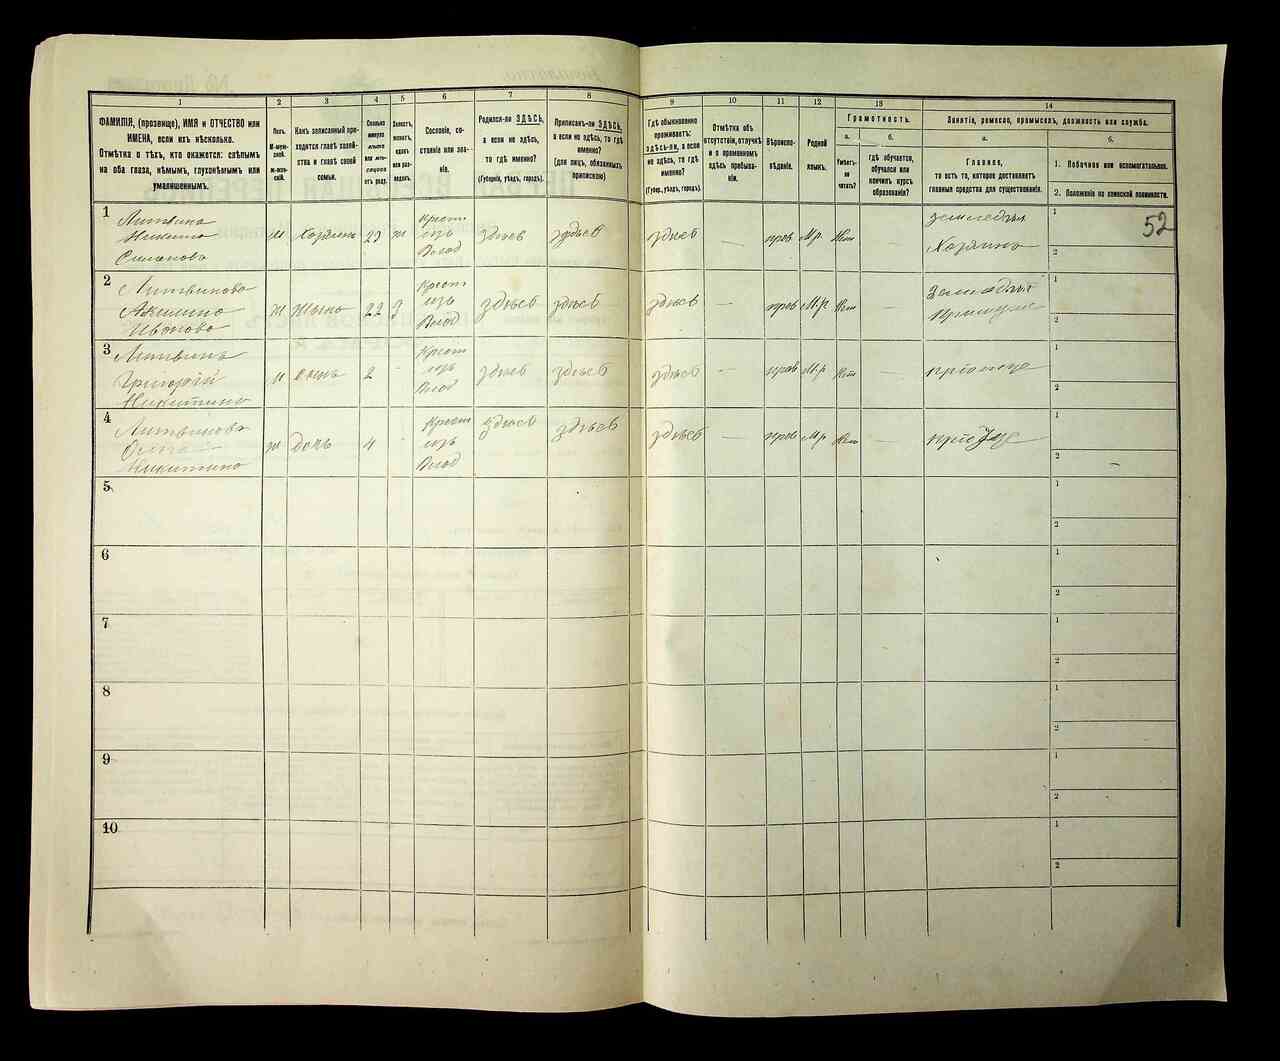 1 2 3 4 5 6 7 8 9 10 11 12 13 14
ФАМИЛІЯ, (прозвище), ИМЯ и ОТЧЕСТВО или
ИМЕНА, если ихъ нѣсколько.
Отмѣтка о тѣхъ, кто окажется: слѣпымъ
на оба глаза, нѣмымъ, глухонѣмымъ или
умалишеннымъ.
Полъ.
М-муж-
ской.
Ж-жен-
скій.
Какъ записанный при-
ходится главѣ хозяй-
ства и главѣ своей
семьи.
Сколько
минуло
лѣтъ
или мѣ-
сяцевъ
отъ роду.
Холостъ,
женатъ,
вдовъ
или раз-
веденъ.
Сословіе, со-
стояніе или зва-
ніе.
Родился-ли ЗДѢСЬ,
а если не здѣсь,
то гдѣ именно?
(Губернія, уѣздъ, городъ).
Приписанъ-ли ЗДѢСЬ,
а если не здѣсь, то гдѣ
именно?
(для лицъ, обязанныхъ
припискою)
Гдѣ обыкновенно
проживаетъ:
здѣсь-ли, а если
не здѣсь, то гдѣ
именно?
(Губер., уѣздъ, городъ).
Отмѣтка объ
отсутствіи, отлучкѣ
и о временномъ
здѣсь пребыва-
ніи.
Вѣроиспо-
вѣданіе.
Родной
языкъ.
Грамотность.
а. б.
Умѣетъ-
ли
читать?
гдѣ обучается,
обучался или
кончилъ курсъ
образованія?
Занятіе, ремесло, промыселъ, должность или служба.
а. б.
Главное,
то есть то, которое доставляетъ
главныя средства для существованія.
1. Побочное или вспомогательное.
2. Положеніе по воинской повинности.
52
1
Никита
м Хозяинъ 23 ж
Крест
изъ
Влад
здѣсь здѣсь здѣсь — прав М.р. Нет —
земледѣл
Хозяинъ
1
2
2
Литвинова
Акилина
Иванова
ж жена 22 З
Крест
изъ
Влад
здѣсь здѣсь здѣсь — прав М.р Нет —
Земледѣл
1
2
3
Литвинъ
Григорій
Никитинъ
м сынъ 2
Крест
изъ
Влад
здѣсь здѣсь здѣсь — прав М.р Нет —
1
2
4
Литвинова
Ольга
Никитина
ж дочь 4
Крест
изъ
Влад
здѣсь здѣсь здѣсь — прав М.р Нет —
1
2
5
1
2
6
1
2
7
1
2
8
1
2
9
1
2
10
1
2